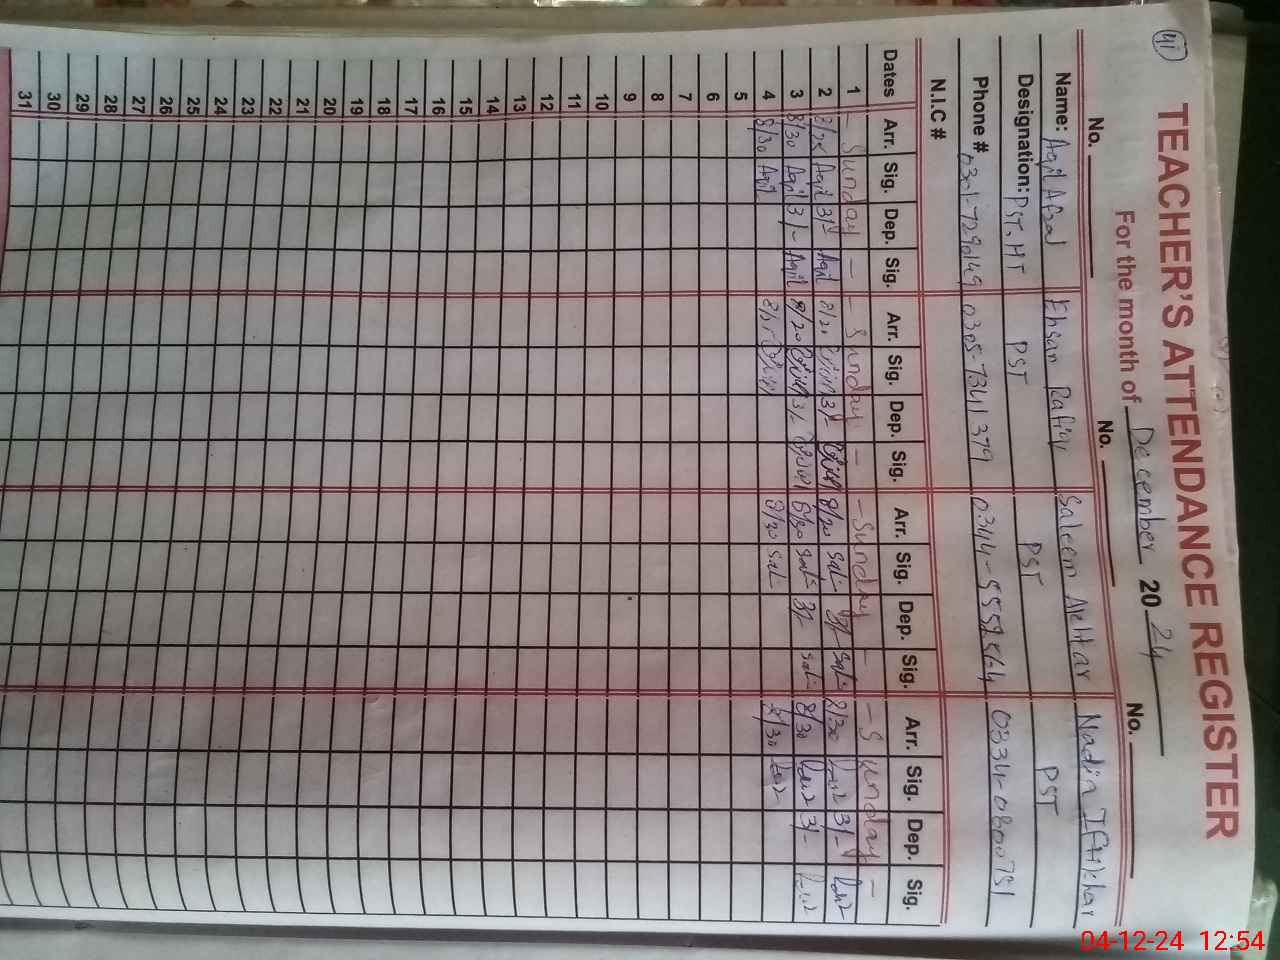 41
TEACHER'S ATTENDANCE REGISTER
For the month of December 2024
No. No. No.
Name: Aqil Afzal Ehsan Rafiq Saleem Akhtar Nadia Iftikhar
Designation: PST.HT PST PST PST
Phone # 0301-7290149 0305-7341379 0344-5552564 0334-0800751
N.I.C #
Dates Arr. Sig. Dep. Sig. Arr. Sig. Dep. Sig. Arr. Sig. Dep. Sig. Arr. Sig. Dep. Sig.
1 - Sunday - - Sunday - - Sunday - - Sunday -
2 8/25 Aqil 3/- Aqil 8/20 3/- 8/20 Sal 3/- Sal 8/30 3/-
3 8/30 Aqil 3/- Aqil 8/20 3/- 8/20 Sal 3/- Sal 8/30 3/-
4 8/30 Aqil 8/20 Sal 8/30
5
6
7
8
9
10
11
12
13
14
15
16
17
18
19
20
21
22
23
24
25
26
27
28
29
30
31
04-12-24 12:54